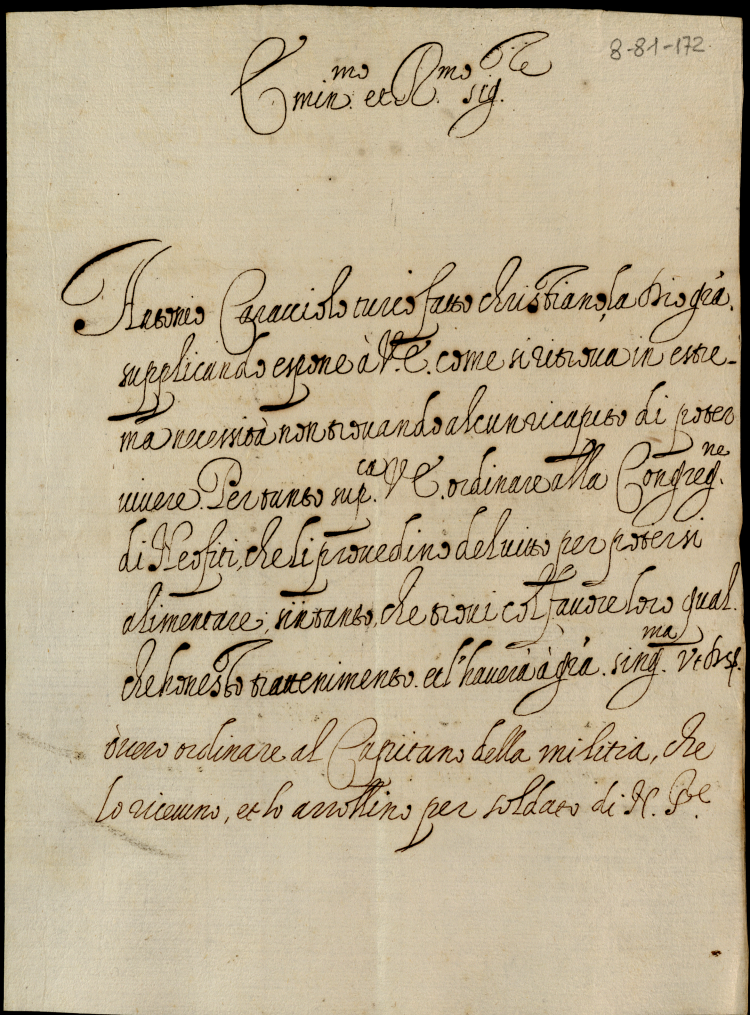 8-81-172.
Emin.mo et R.mo Sig.re
Antonio Caracciolo turco fatto christiano, la Dio gr̃a.
supplicando espone à V. E. come si ritrova in estre-
ma necessità non trovando alcun ricapito di poter
vivere. Per tanto sup.ca V. E. ordinare alla Congreg.ne
di Neofiti, che li provedino del vitto per potersi
alimentare, sin tanto, che trovi col favore loro qual-
che honesto trattenimento. et l'haverà à gr̃a. sing.ma Vt Ds.
òvero ordinare al Capitano della militia, che
lo ricevino, et lo arrollino per soldato di N.